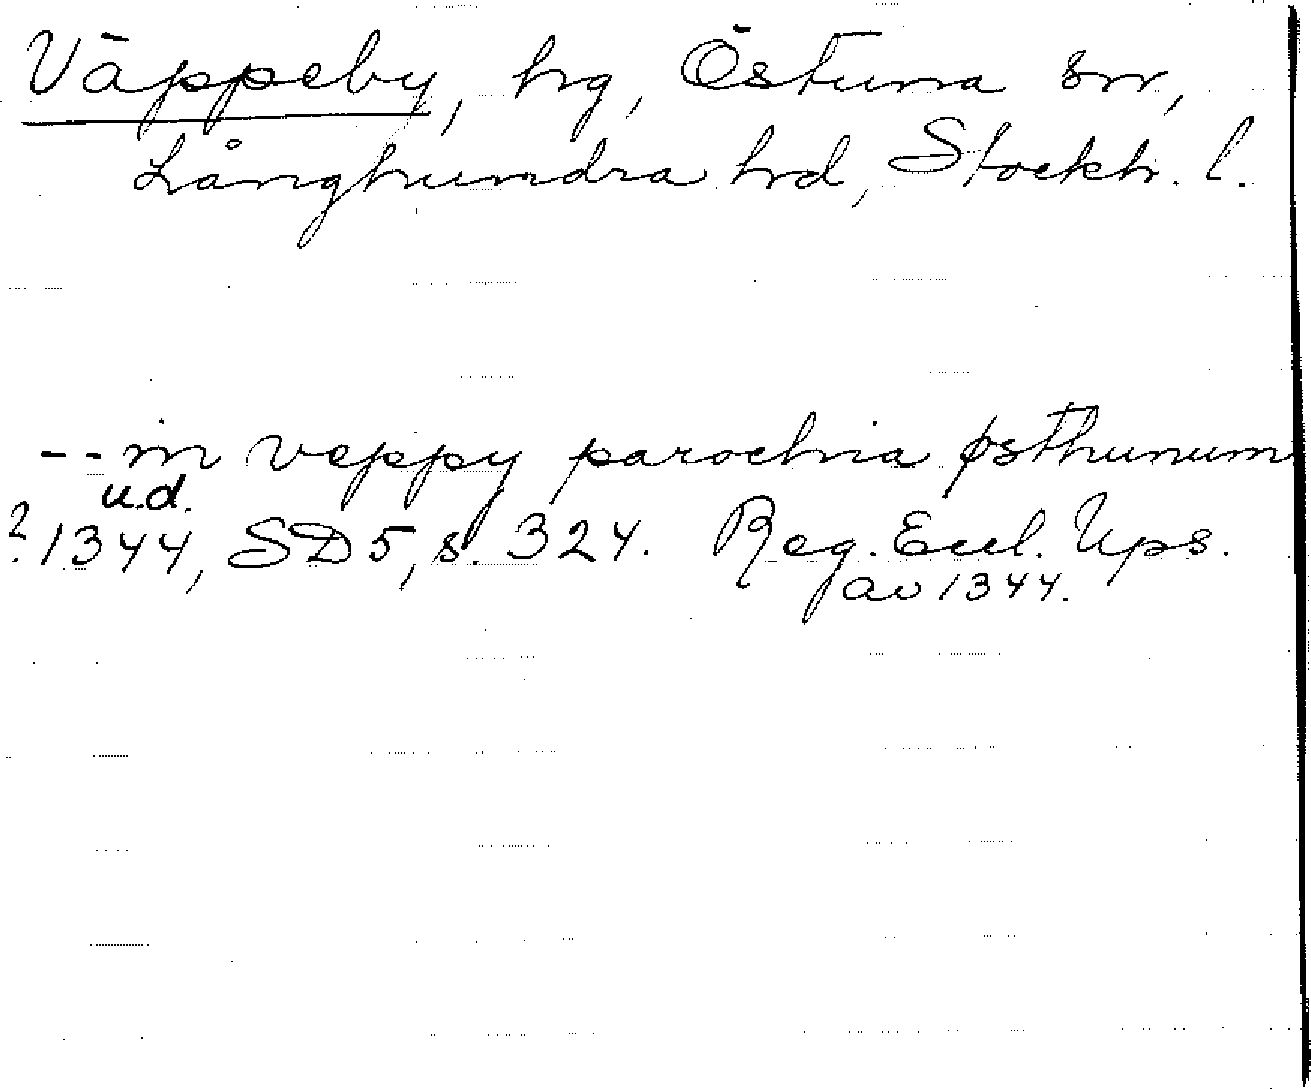 Väppeby, hg, Östuna sn,
Långhundra hrd, Stockh. l.
-- in veppy parochia østhunum
u.d.
? 1344, SD 5, s. 324. Reg. Eccl. Ups.
av 1344.